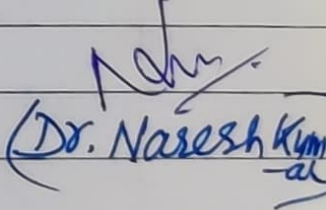 (Dr. Naresh Kum
-ar